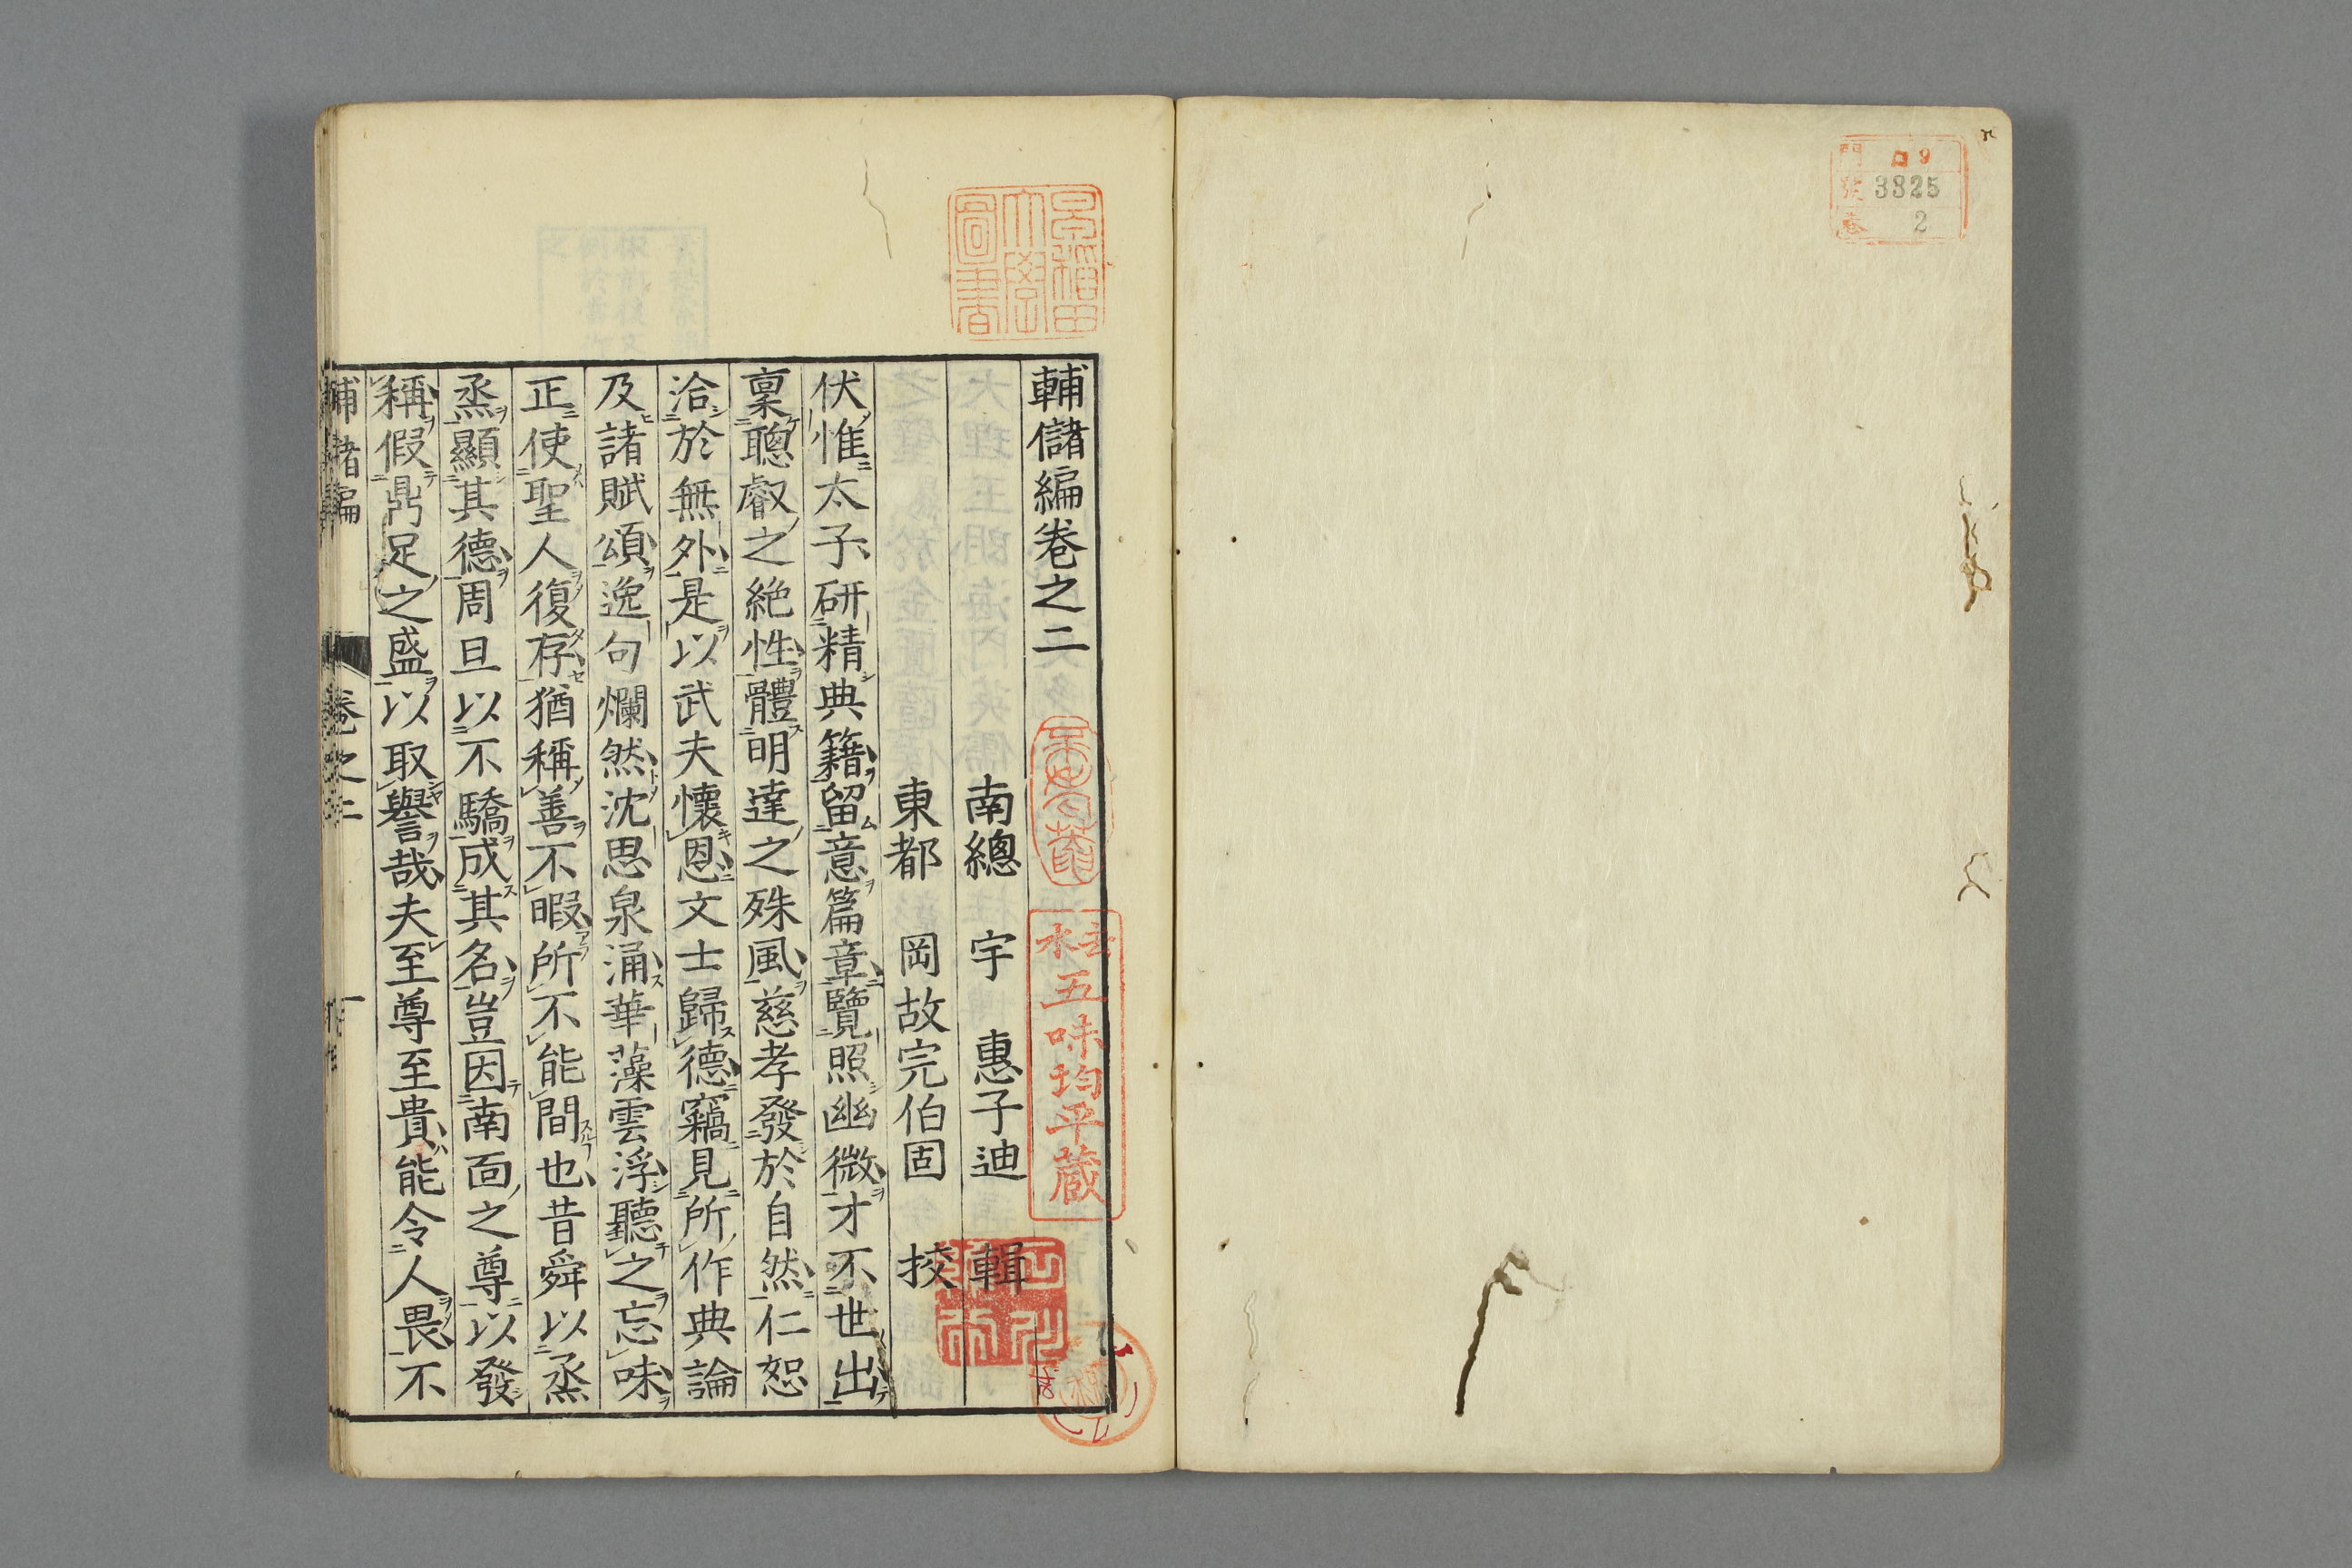 門 ロ9
號 3825
巻 2
早稲田大學圖書
輔儲編卷之二
南總 宇 惠子迪 輯
東都 岡故完伯固 挍
伏惟太子研精典籍留意篇章覽照幽微才不世出
稟聰叡之絶性體明達之殊風慈孝發於自然仁恕
洽於無外是以武夫懷恩文士歸德竊見所作典論
及諸賦頌逸句爛然沈思泉涌華藻雲浮聽之忘味
正使聖人復存猶稱善不暇所不能間也昔舜以烝
烝顯其德周旦以不驕成其名豈因南面之尊以發
稱假鼎足之盛以取譽哉夫至尊至貴能令人畏不
輔儲編 卷之二 一
五味均平蔵